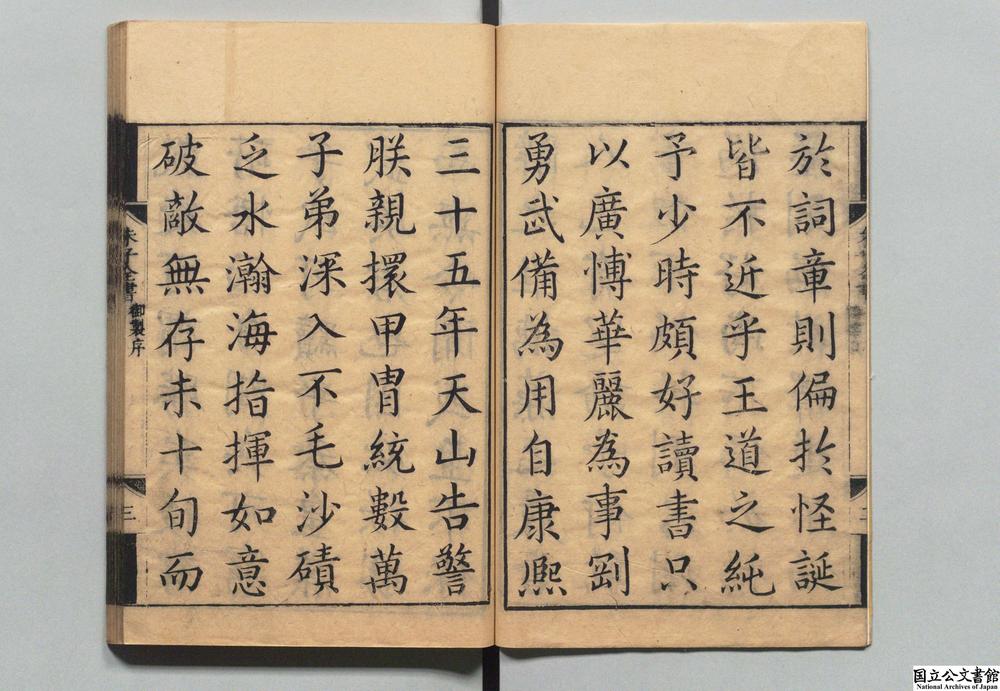 於詞章則偏扵怪誕
皆不近乎王道之純
予少時頗好讀書只
以廣愽華麗為事剛
勇武備為用自康熈
三十五年天山告警
朕親擐甲冑統數萬
子弟深入不毛沙磧
乏水瀚海指揮如意
破敵無存未十旬而
朱子全書
御製序
三
国立公文書館
National Archives of Japan